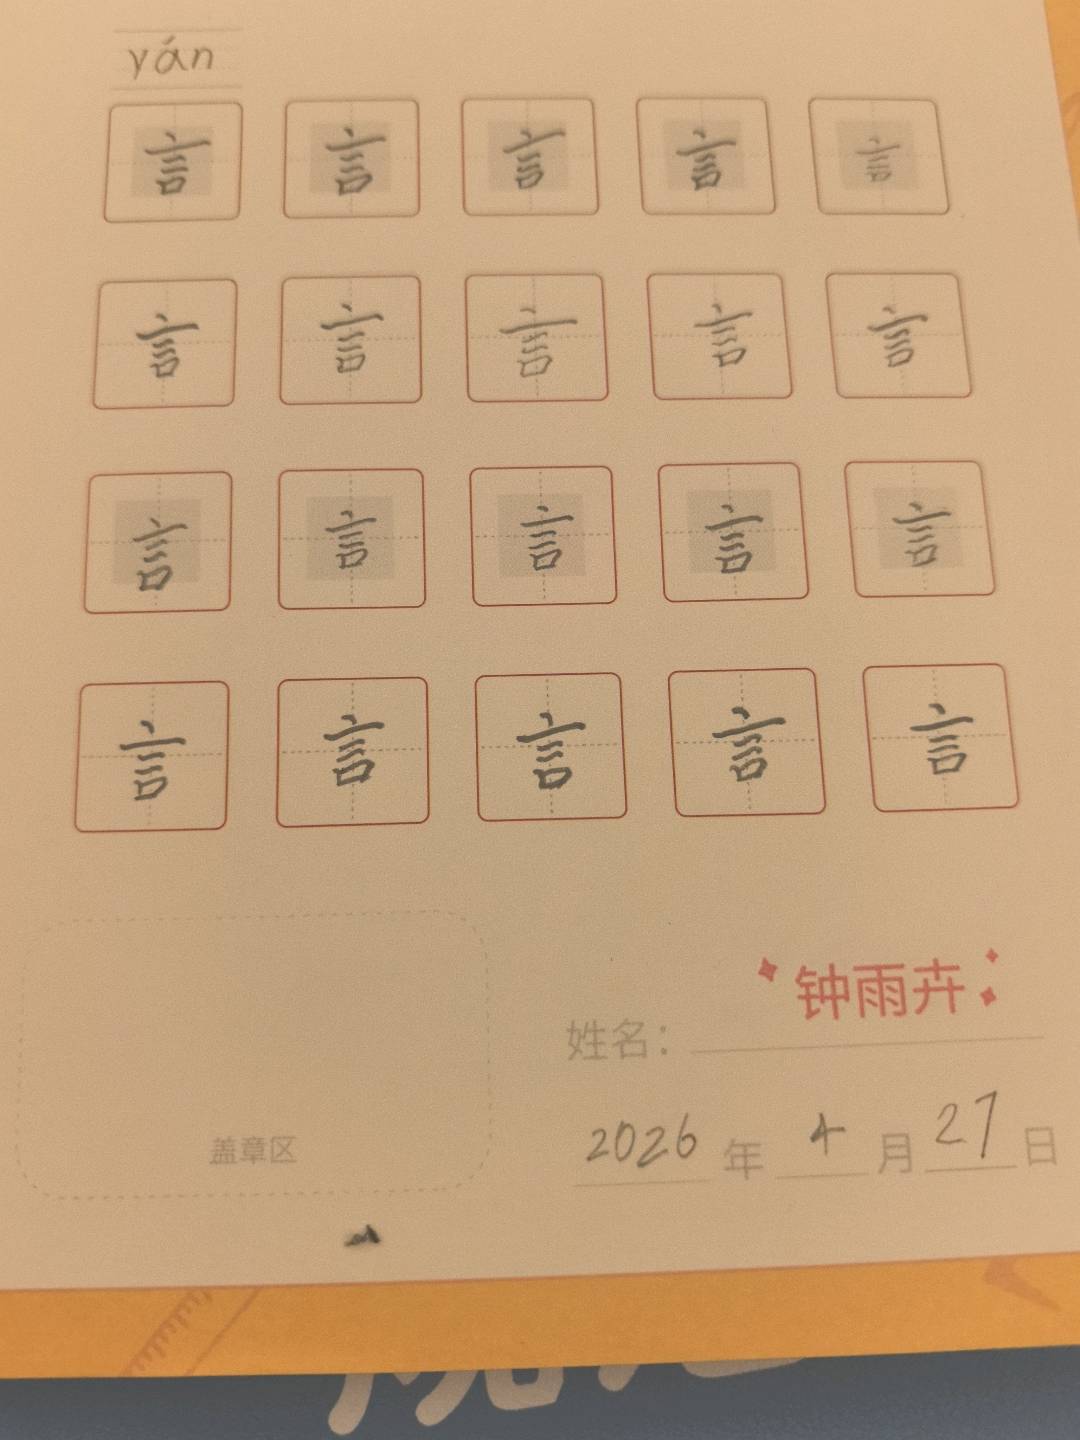 yán
言 言 言 言 言
言 言 言 言 言
言 言 言 言 言
言 言 言 言 言
钟雨卉
姓名：
2026 年 4 月 27 日
盖章区